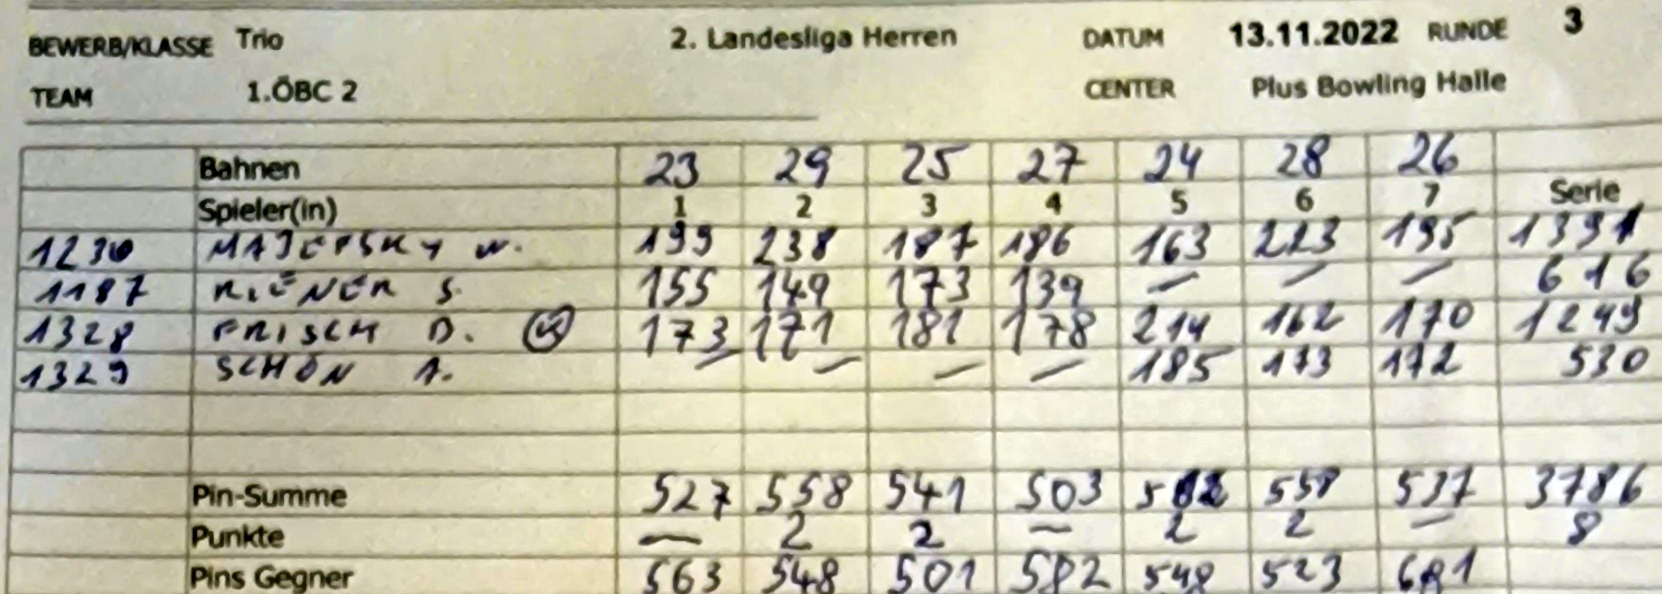 BEWERB/KLASSE Trio 2. Landesliga Herren DATUM 13.11.2022 RUNDE 3
TEAM 1.ÖBC 2 CENTER Plus Bowling Halle
Bahnen 23 29 25 27 24 28 26
Spieler(in) 1 2 3 4 5 6 7 Serie
1230 MAJERSKY W. 199 238 187 186 163 223 195 1391
1187 RIENER S. 155 149 173 139 — — — 616
1328 FRISCH D. 173 171 181 178 214 162 170 1249
1329 SCHÖN A. — — — — 185 173 172 530
Pin-Summe 527 558 541 503 562 558 537 3786
Punkte — 2 2 — 2 2 — 8
Pins Gegner 563 548 501 582 548 523